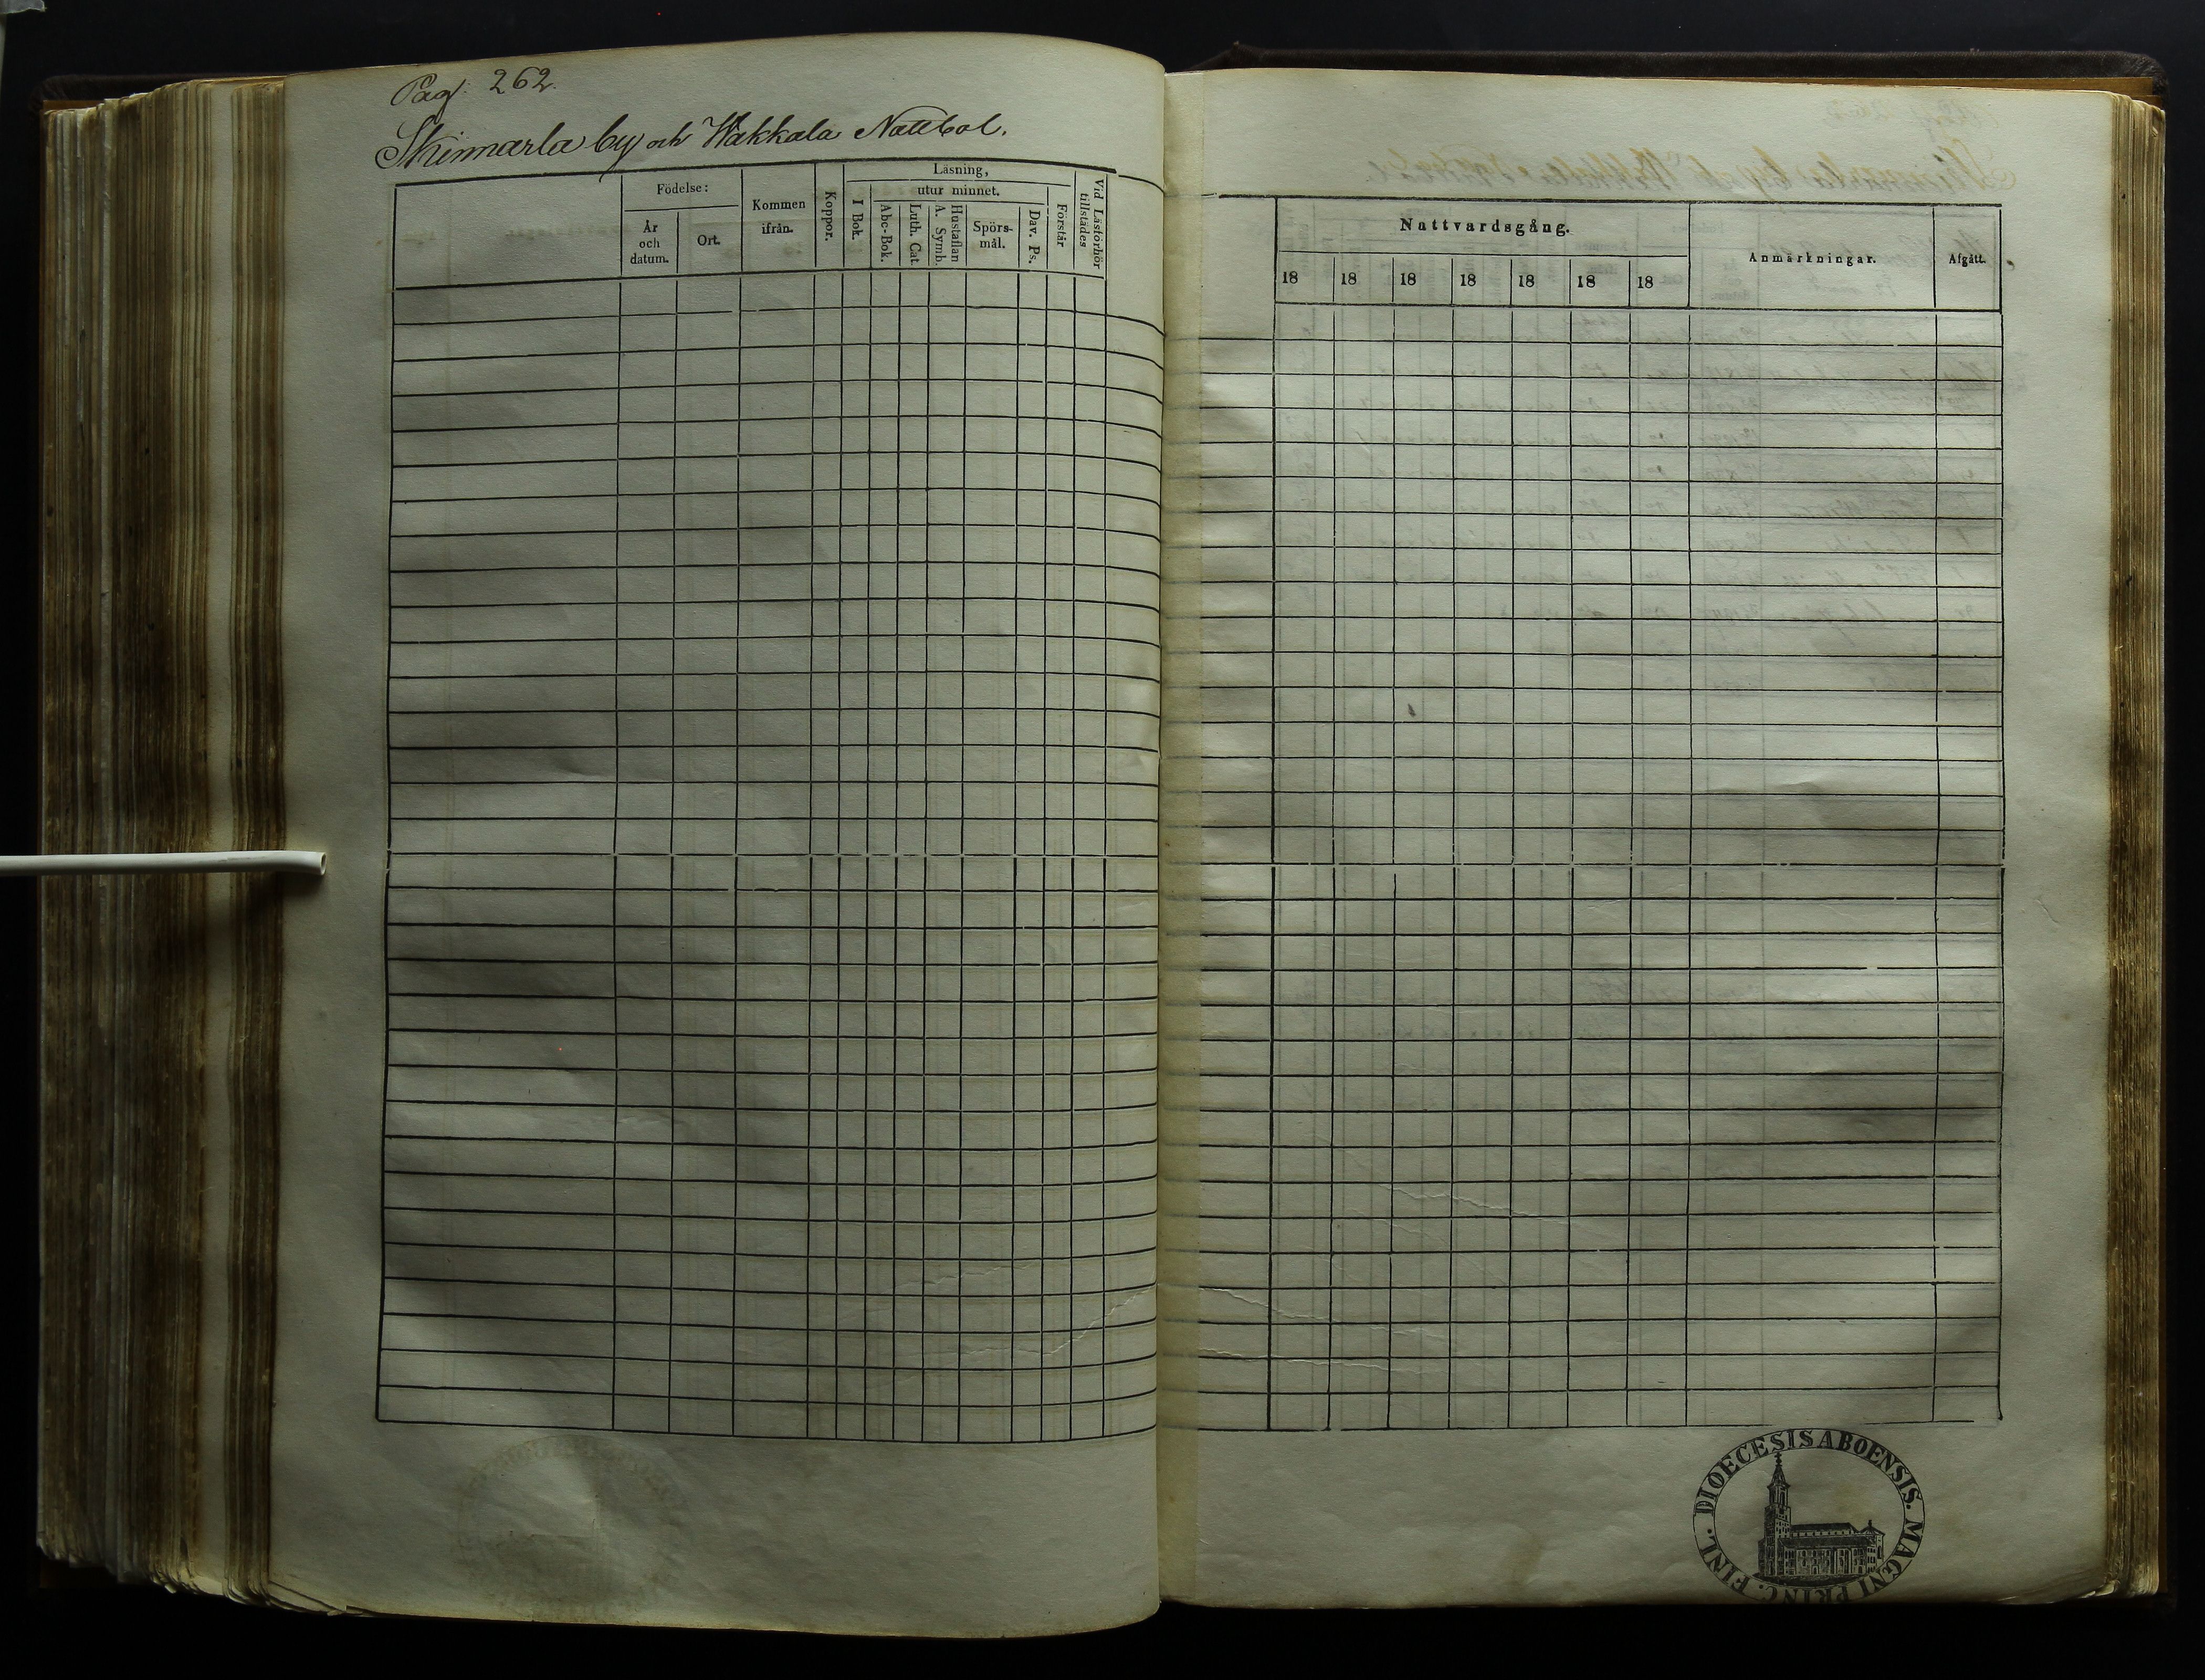 Pag. 262.
Skinnarla by och Wakkala Nattbol.
Födelse:
År och datum.
Ort.
Kommen ifrån.
Koppor.
Läsning,
I Bok.
utur minnet.
Abc-Bok.
Luth. Cat.
Hustaflan A. Symb.
Spörs-mål.
Dav. Ps.
Förstår
Vid Läsförhör tillstädes
Nattvardsgång.
18 18 18 18 18 18 18
Anmärkningar.
Afgått.
DIOECESIS ABOENSIS. MAGNI PRINC. FINL.